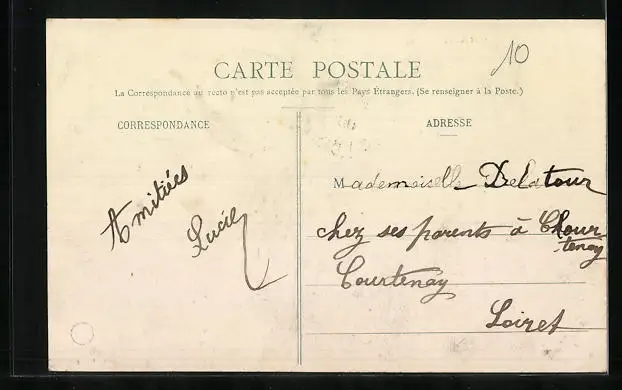 10
CARTE POSTALE
La Correspondance au recto n'est pas acceptée par tous les Pays Étrangers. (Se renseigner à la Poste.)
CORRESPONDANCE
ADRESSE
Amitiées
Lucie
Mademoiselle Delatour
chez ses parents à Chour
tenay
Courtenay
Loiret